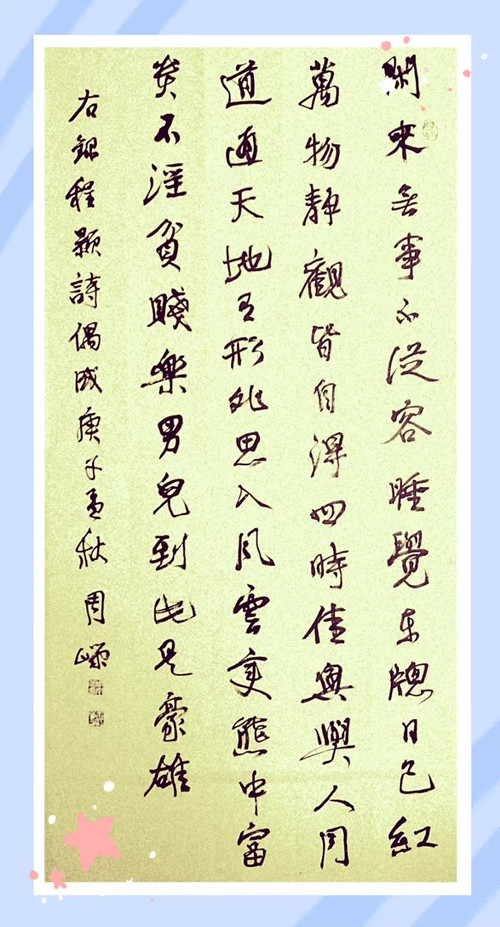 閑来無事不從容睡覺東牎日已紅
萬物静觀皆自得四時佳興與人同
道通天地有形外思入風雲変態中富
貴不淫貧賤樂男兒到此是豪雄
右錄程顥詩偶成庚子孟秋周嶸